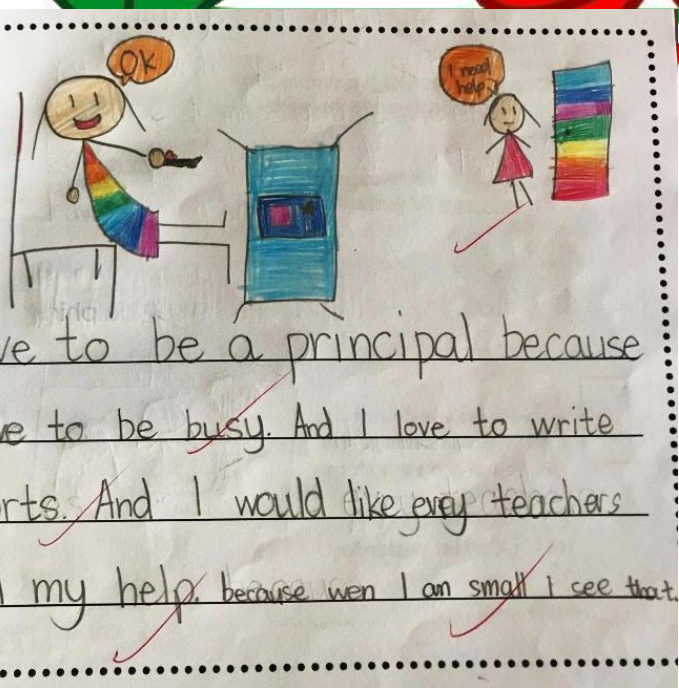 Ok
I need
help.
ve to be a principal because
ve to be busy. And I love to write
rts. And I would like evey teachers
my help. because wen I am small I see that.